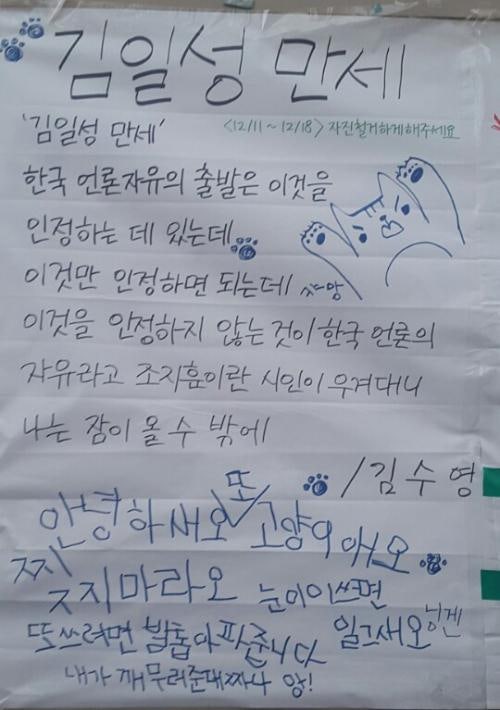 김일성 만세
'김일성 만세'
<12/11 ~ 12/18> 자진철거하게해주세요
한국 언론자유의 출발은 이것을
인정하는 데 있는데
이것만 인정하면 되는데
이것을 인정하지 않는 것이 한국 언론의
자유라고 조지훈이란 시인이 우겨대니
나는 잠이 올 수 밖에
/김수영
안녕하새오 또 고양이애오
찢지마라오 눈이이쓰면
일그새오 닝겐
또쓰려면 발톱아파죽니다
내가 깨무러준대짜나 앙!